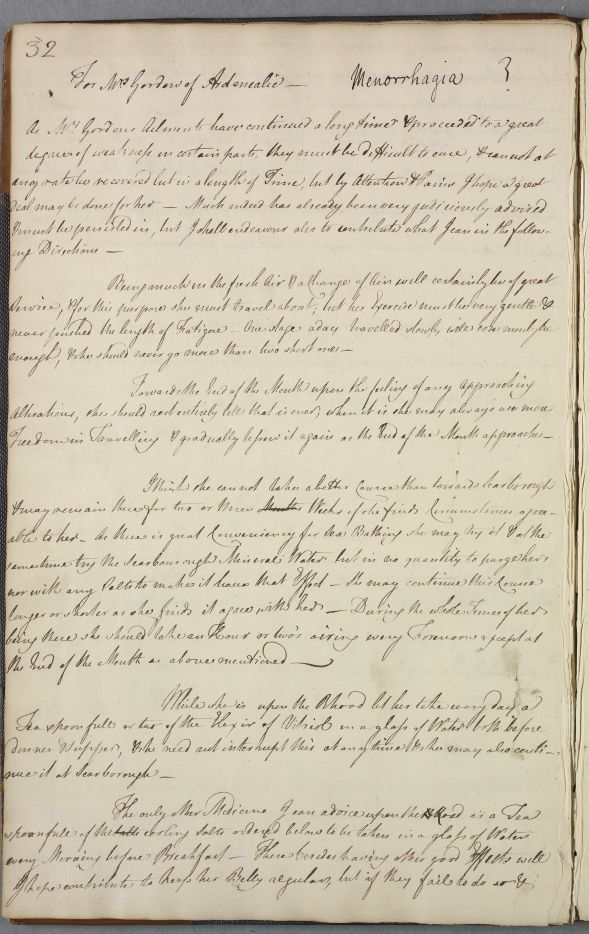 32
For Mrs Gordon of Ardmealie — Menorrhagia ?
As Mrs Gordons Ailments have continued a long time & proceeded to a great
degree of weakness in certain parts, they must be difficult to cure, & cannot at
any rate be recovered but in a length of Time, but by Attention & Pains I hope a great
deal may be done for her — Much indeed has already been very judiciously advised
& must be persisted in, but I shall endeavour also to contribute what I can in the follow-
ing Directions —
Being much in the fresh Air & a Change of Air will certainly be of great
Service, & for this purpose she must travel about, but her Exercise must be very gentle &
never pushed the length of Fatigue — One stage a day travelled slowly will commonly be
enough, & she should never go more than two short ones —
Towards the End of the Month upon the feeling of any approaching
Alterations, she should rest entirely till that is over, when it is she may always use more
Freedom in Travelling & gradually lessen it again as the End of the Month approaches —
I think she cannot take a better Course than towards Scarborough
& may remain there for two or three Months Weeks if she finds Circumstances agree-
able to her — As there is great Conveniency for Sea Bathing she may try it & at the
same time try the Scarborough Mineral Water but in no quantity to purge her
nor with any Salts to make it have that Effect — She may continue this Course
longer or shorter as she finds it agree with her — During the whole Time of her
being there she should take an Hour or two's airing every Forenoon except at
the End of the Month as above mentioned —
While she is upon the Rhoad let her take every day a
Tea spoonfull or two of the Elixir of Vitriol in a glass of Water both before
dinner & supper, & she need not interrupt this at any time & she may also conti-
nue it at Scarborough —
The only other Medicine I can advise upon the Rhoad is a Tea
spoonfull of the Salts cooling Salts ordered below to be taken in a glass of Water
every Morning before Breakfast — These besides having other good Effects will
I hope contribute to keep her Belly regular, but if they fail to do so &